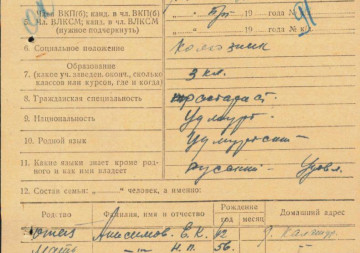 Член ВКП(б); канд. в чл. ВКП(б) „ “ 19 года № 
чл. ВЛКСМ; канд. в чл. ВЛКСМ „ “ 19 года № кл.
(нужное подчеркнуть)
6. Социальное положение колхозник
7. Образование 3 кл.
(какое уч. заведен. оконч., сколько
классов или курсов, где и когда)
8. Гражданская специальность
9. Национальность Удмурт
10. Родной язык Удмуртский
11. Какие языки знает кроме род-
ного и как ими владеет русский - Удовл.
12. Состав семьи: „ “ человек, а именно:
Родство Фамилия, имя и отчество Рождение Домашний адрес
год месяц
отец Анисимов Е. К. 92
Мать -"- Н. П. 56